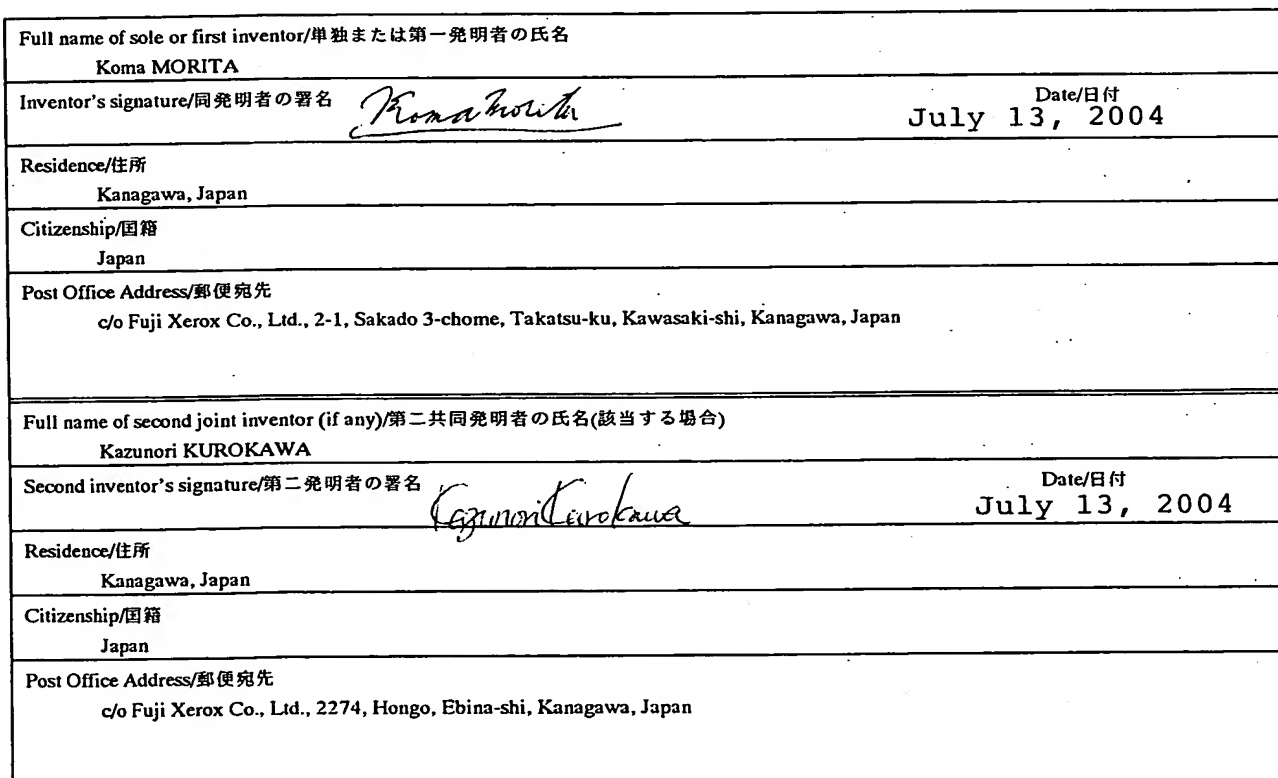 Full name of sole or first inventor/単独または第一発明者の氏名
Koma MORITA
Inventor's signature/同発明者の署名 Koma Morita
Date/日付
July 13, 2004
Residence/住所
Kanagawa, Japan
Citizenship/国籍
Japan
Post Office Address/郵便宛先
c/o Fuji Xerox Co., Ltd., 2-1, Sakado 3-chome, Takatsu-ku, Kawasaki-shi, Kanagawa, Japan
Full name of second joint inventor (if any)/第二共同発明者の氏名(該当する場合)
Kazunori KUROKAWA
Second inventor's signature/第二発明者の署名 Kazunori Kurokawa
Date/日付
July 13, 2004
Residence/住所
Kanagawa, Japan
Citizenship/国籍
Japan
Post Office Address/郵便宛先
c/o Fuji Xerox Co., Ltd., 2274, Hongo, Ebina-shi, Kanagawa, Japan